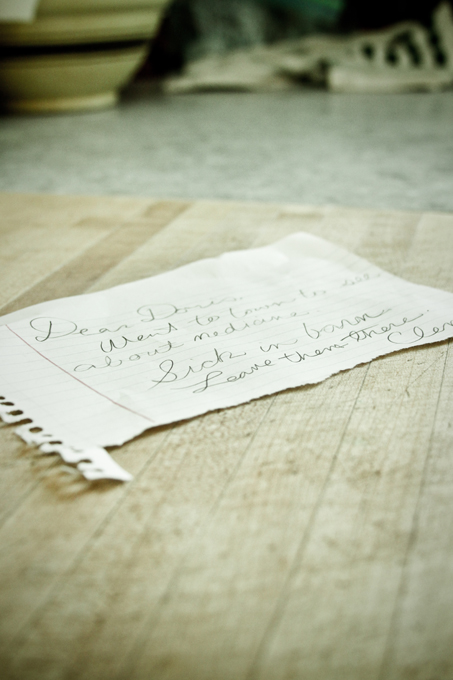 Dear Doris,
Went to town to see
about medicine.
Sick in barn.
Leave them there.
Clem